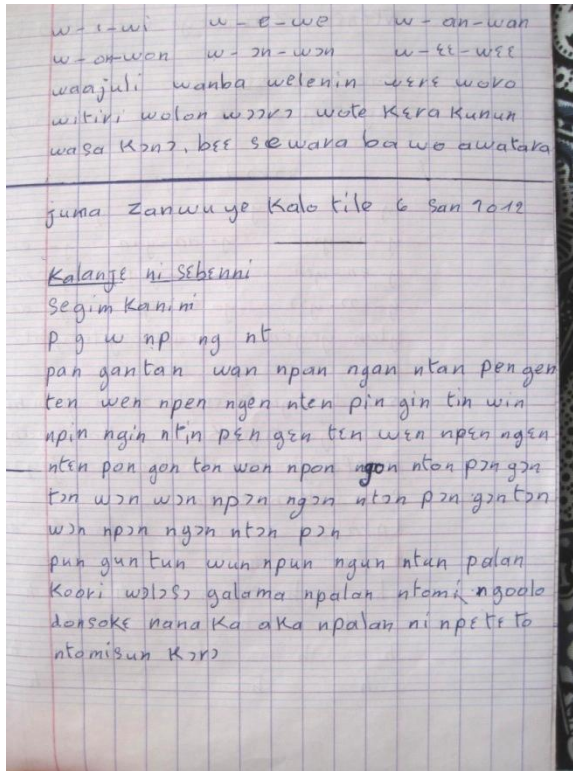 w-i-wi w-e-we w-an-wan
w-on-won w-ɔn-wɔn w-ɛɛ-wɛɛ
waajuli wanba welenin wɛrɛ woro
witiri wolon wɔɔrɔ wote Kɛra Kunun
wasa Kɔnɔ. bɛɛ sewara ba wo awatara
juma Zanwuye Kalo tile 6 San 2012
Kalanje ni sɛbɛnni
segim Kanini
p g w np ng nt
pan gantan wan npan ngan ntan pen gen
ten wen npen ngen nten pin gin tin win
npin ngin ntin pɛn gɛn tɛn wɛn npɛn ngɛn
ntɛn pon gon ton won npon ngon nton pɔn gɔn
tɔn wɔn wɔn npɔn ngɔn ntɔn pɔn gɔn tɔn
wɔn npɔn ngɔn ntɔn pɔn
pun gun tun wun npun ngun ntun palan
Koori wɔlɔsɔ galama npalan ntomi ngoolo
donsokɛ nana Ka aka npalan ni npɛtɛ to
ntomisun Kɔrɔ